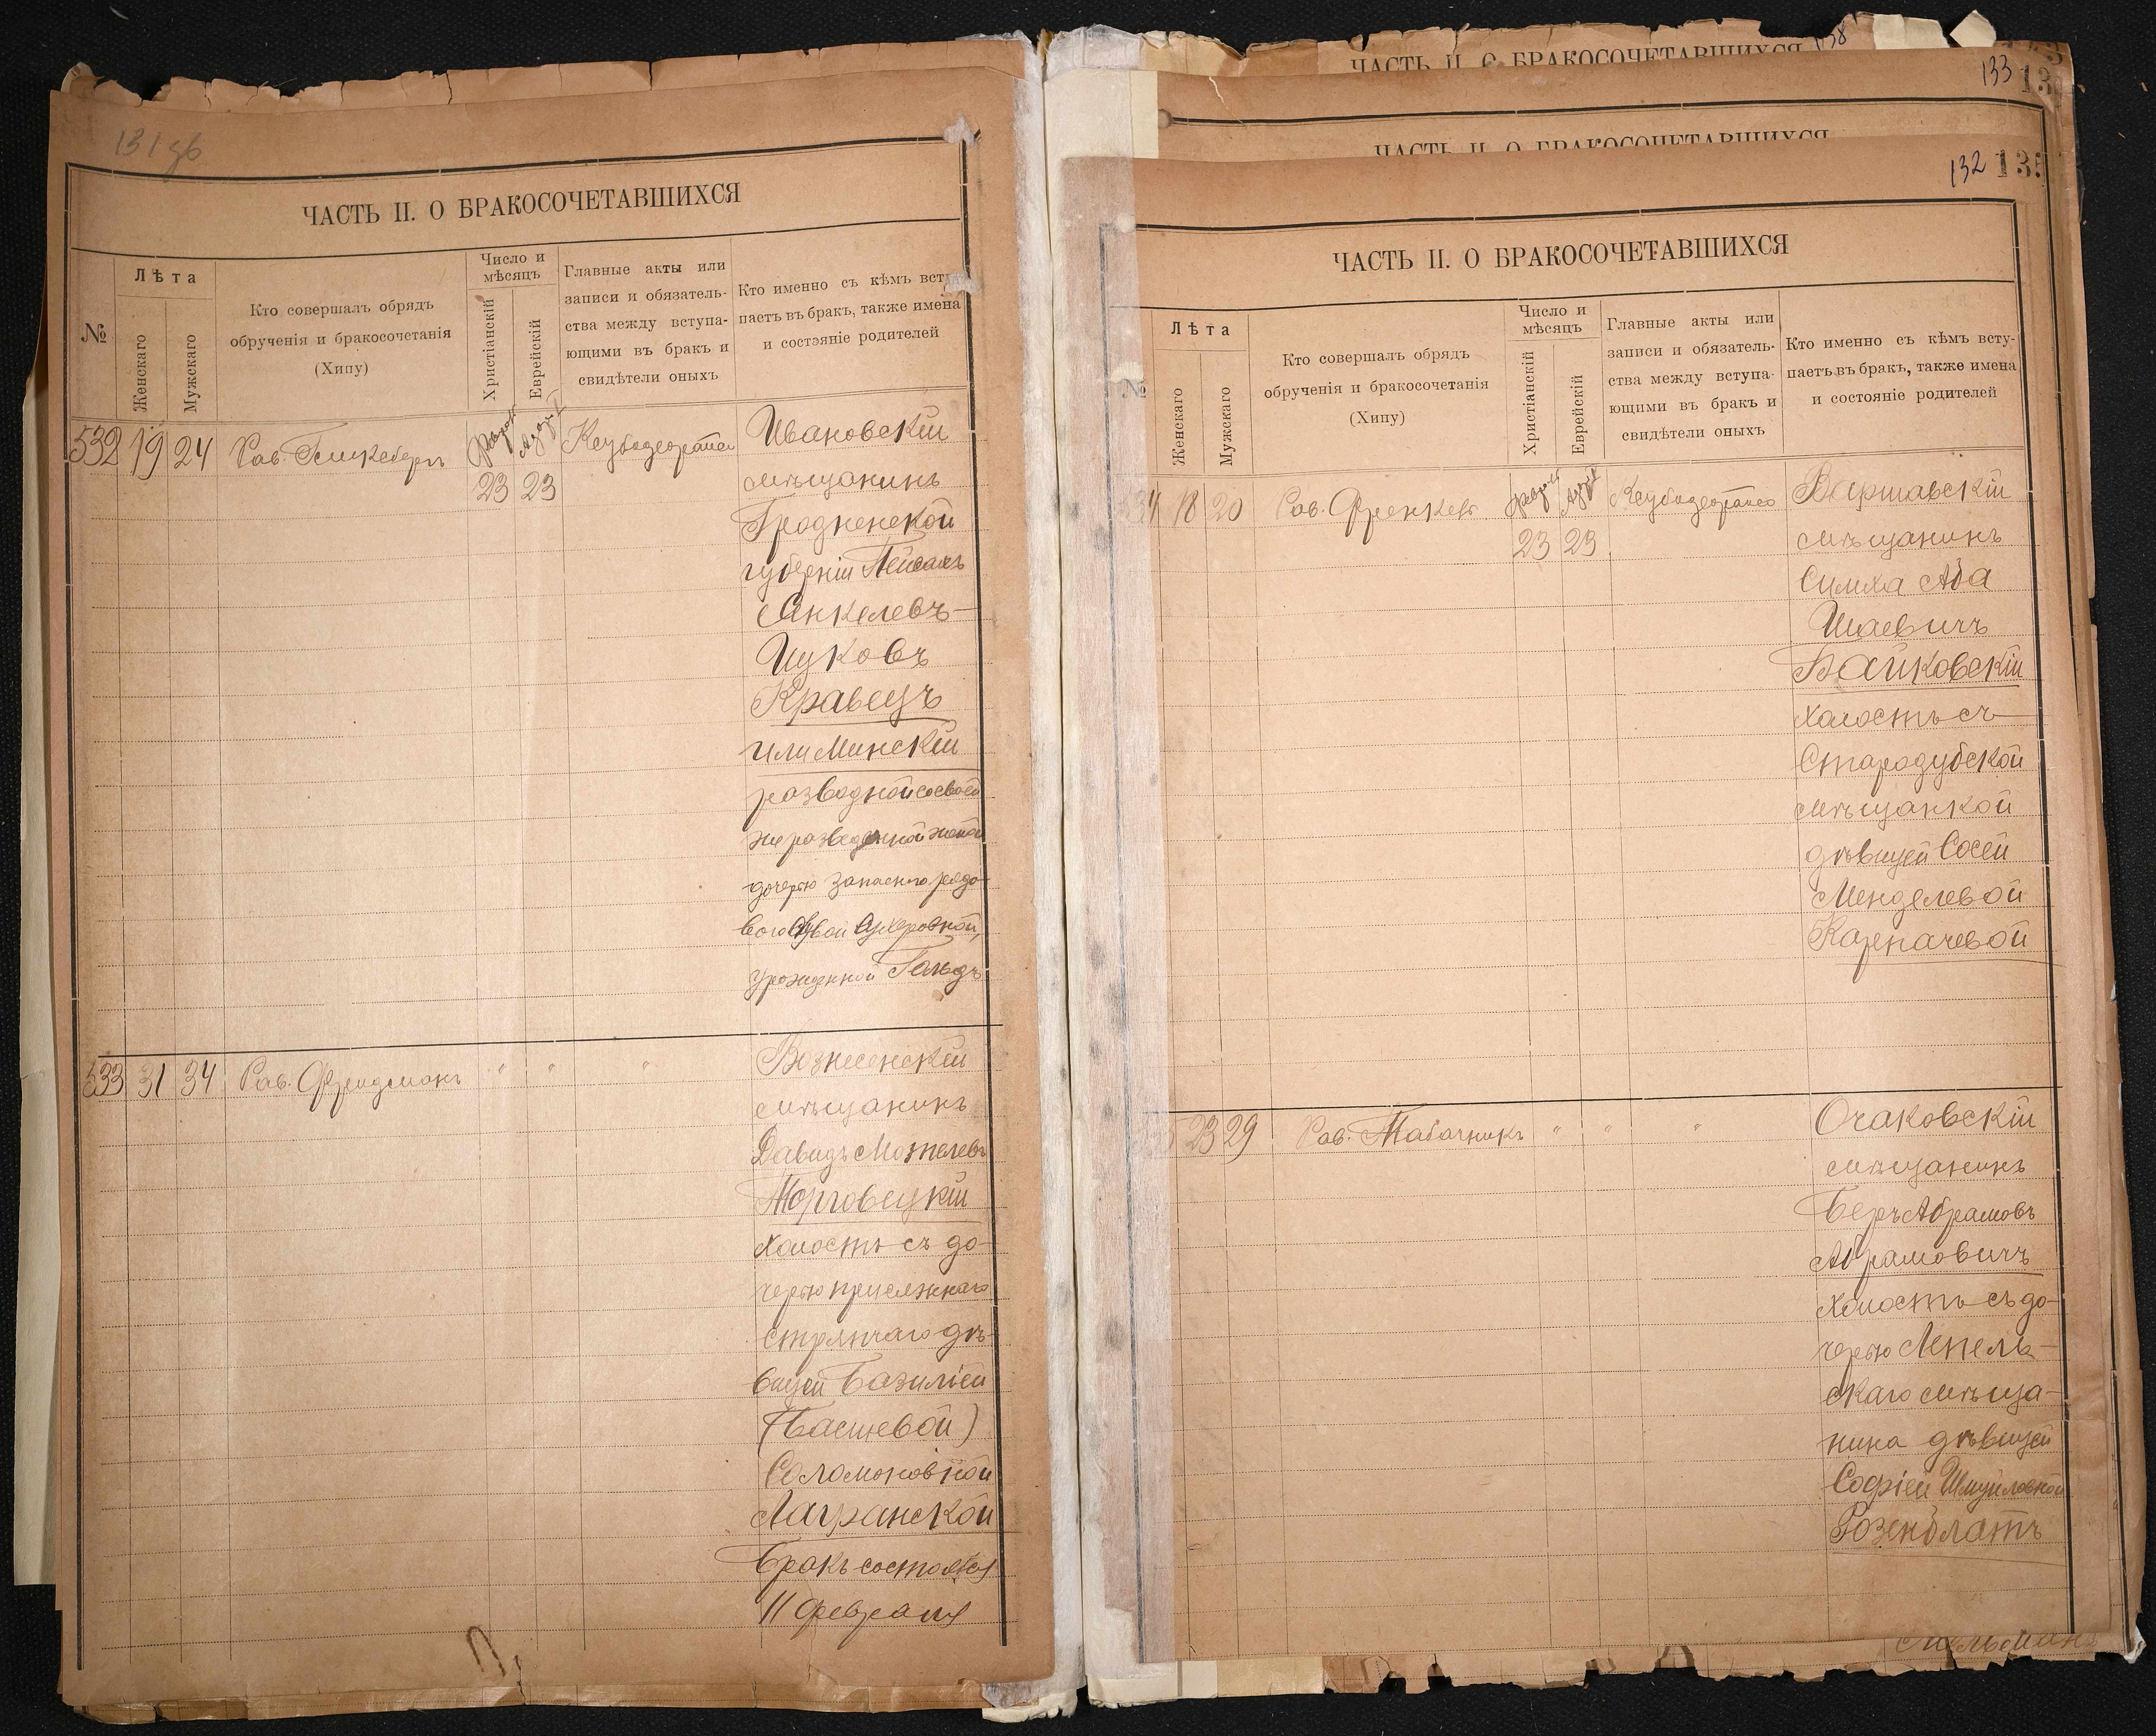 131 зв
ЧАСТЬ II. О БРАКОСОЧЕТАВШИХСЯ
№
Лѣта
Женскаго
Мужскаго
Кто совершалъ обрядъ
обрученія и бракосочетанія
(Хипу)
Число и
мѣсяцъ
Христіанскій
Еврейскій
Главные акты или
записи и обязатель-
ства между вступа-
ющими въ бракъ и
свидѣтели оныхъ
Кто именно съ кѣмъ всту
паетъ въ бракъ, также имена
и состэяніе родителей
532 19 24 Рав. Февраля Адаръ Ивановскій
23 23 мѣщанинъ
Гродненской
губерніи Пейсахъ
Янкелевъ-
Ицковъ
Кравецъ
или Минскій
разводной со своей
же разведенной женой
дочерью запасного рядо-
вого
урожденной Гольдъ
533 31 34 Рав. Фридманъ " " " Вознесенскій
мѣщанинъ
Давидъ Мошелевъ
Торговецкій
холостъ съ до-
черью присяжнаго
стряпчаго дѣ-
вицей Базиліей
(Басшевой)
Соломоновной
Лагранской
Бракъ состоялся
11 февраля
ЧАСТЬ II. О БРАКОСОЧЕТАВШИХСЯ 138
133
ЧАСТЬ II. О БРАКОСОЧЕТАВШИХСЯ
132 135
ЧАСТЬ II. О БРАКОСОЧЕТАВШИХСЯ
№
Лѣта
Женскаго
Мужскаго
Кто совершалъ обрядъ
обрученія и бракосочетанія
(Хипу)
Число и
мѣсяцъ
Христіанскій
Еврейскій
Главные акты или
записи и обязатель-
ства между вступа-
ющими въ бракъ и
свидѣтели оныхъ
Кто именно съ кѣмъ всту-
паетъ въ бракъ, также имена
и состояніе родителей
34 18 20 Рав. Френкель Февраля Адаръ Варшавскій
23 23 мѣщанинъ
Симха Аба
Шаевичъ
Байковскій
холостъ съ
Стародубской
мѣщанкой
дѣвицей Сосей
Менделевой
Карпачевой
23 29 Рав. Табачникъ " " " Очаковскій
мѣщанинъ
Беръ Абрамовъ
Абрамовичъ
холостъ съ до-
черью Лепель-
скаго мѣща-
нина дѣвицей
Софіей Шмуйловной
Розенблатъ